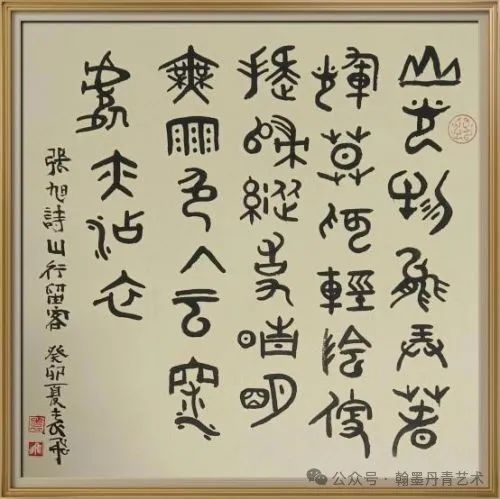 山光物態弄春
輝莫為輕陰便
擬歸縱使晴明
無雨色入云深
處亦沾衣
張旭詩山行留客 癸卯夏 飛
公众号·翰墨丹青艺术